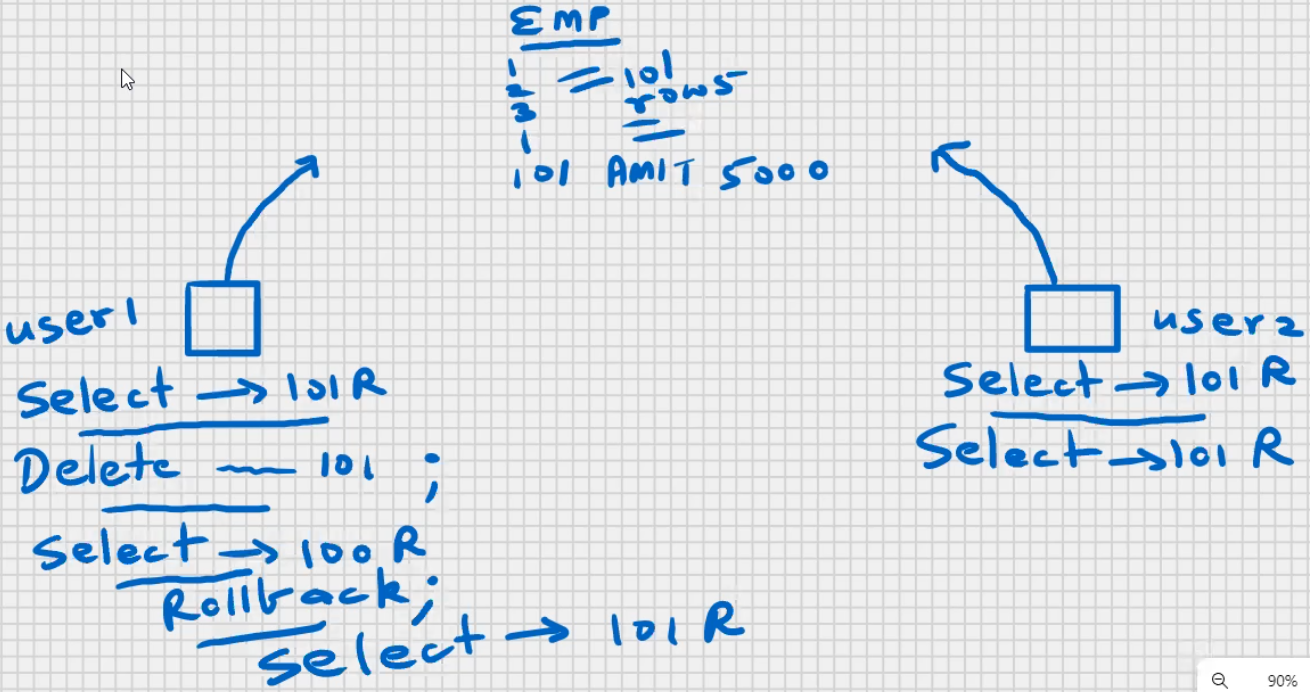 EMP
1
2
3
= 101
rows
1
101 AMIT 5000
user1
Select → 101 R
Delete — 101 ;
Select → 100 R
Rollback;
Select → 101 R
user2
Select → 101 R
Select → 101 R
90%